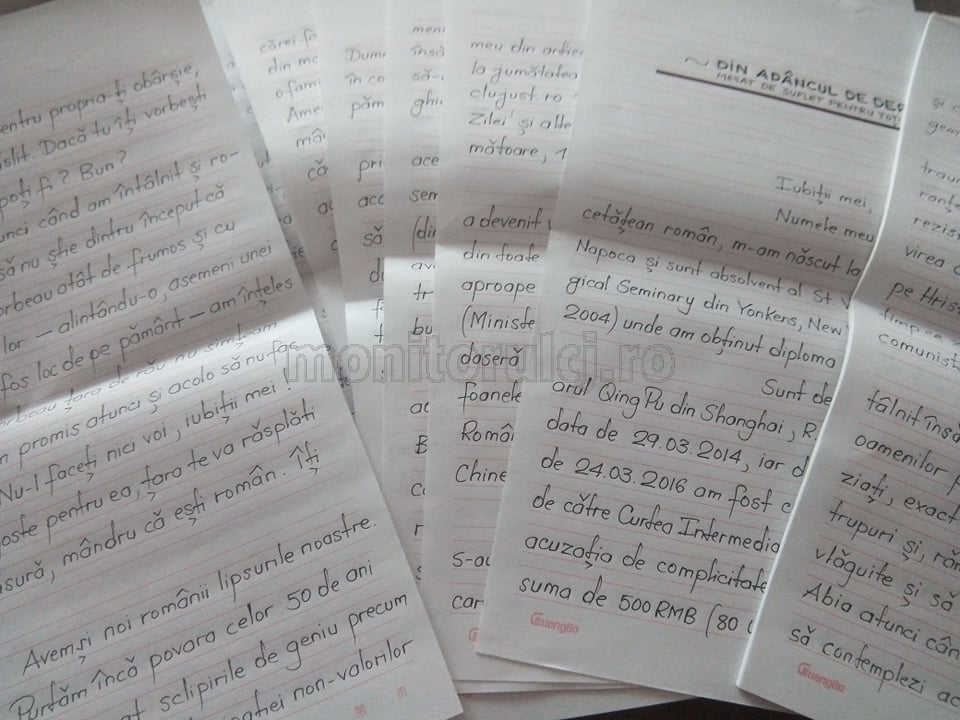 entru propria-ți obârșie,
islit. Dacă tu îți vorbești
poți fi? Bun?
unci când am întâlnit și ro-
să nu știe dintru început că
orbeau atât de frumos și cu
lor — alintându-o, asemeni unei
fos loc de pe pământ — am înțeles
orbeau țara de rău nu simțeam
n promis atunci și acolo să nu fac
Nu-l faceți nici voi, iubiții mei!
oste pentru ea, țara te va răsplăti
sură, mândru că ești român. Îți
Avem și noi românii lipsurile noastre.
Purtăm încă povara celor 50 de ani
at sclipirile de geniu precum
non-valorilor
cărei fa
din me
o fami
Ame
mân
că
ac
Dum
în co
păm
pri
acc
să
meni
însă
să-
ghi
ace
sem
(dir
av
tr
bu
ac
B
meu din anfie
la jumătatea
clujust.ro
Zilei' și alte
mătoare, 1
a devenit
din toate
aproape
(Ministe
daseră
foanele
Român
Chine
s-ac
car
~ DIN ADÂNCUL DE DEP
MESAJ DE SUFLET PENTRU TOȚI
Iubiții mei,
Numele meu
cetățean român, m-am născut la
Napoca și sunt absolvent al St. V
gical Seminary din Yonkers, New
2004) unde am obținut diploma
Sunt de
arul Qing Pu din Shanghai, R.
data de 29.03.2014, iar d
de 24.03.2016 am fost c
de către Curtea Intermedia
acuzația de complicitate
suma de 500 RMB (80
GuangBo
și c
gem
traum
ranțe
rezist
virea
pe Hris
timp ce
comunist
tâlnit însă
oamenilor
ziați, exact
trupuri și, răm
vlăguite și să
Abia atunci cân
să contemplezi ac
GuangBo
monitorulcj.ro